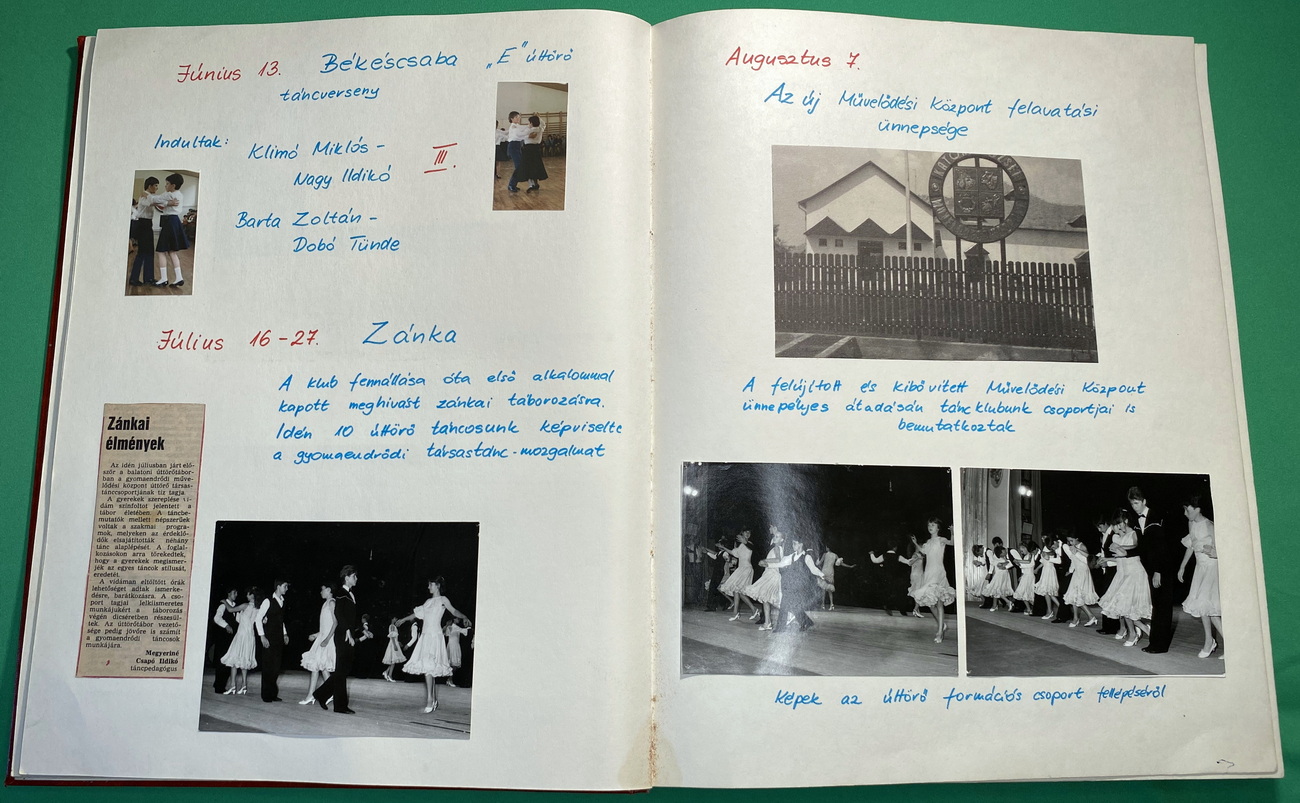 Június 13. Békéscsaba „E" úttörő
táncverseny
Indultak:
Klimó Miklós -
Nagy Ildikó
III.
Barta Zoltán -
Dobó Tünde
Július 16-27. Zánka
A klub fennállása óta első alkalommal
kapott meghivást zánkai táborozásra.
Idén 10 úttörő táncosunk képviselte
a gyomaendrődi társastánc-mozgalmat
Zánkai
élmények
Az idén júliusban járt elő-
ször a balatoni úttörőtábor-
ban a gyomaendrődi műve-
lődési központ úttörő társas-
tánccsoportjának tíz tagja.
A gyerekek szereplése vi-
dám színfoltot jelentett a
tábor életében. A táncbe-
mutatók mellett népszerűek
voltak a szakmai progra-
mok, melyeken az érdeklő-
dők elsajátították néhány
tánc alaplépését. A foglal-
kozásokon arra törekedtek,
hogy a gyerekek megismer-
jék az egyes táncok stílusát,
eredetét.
A vidáman eltöltött órák
lehetőséget adtak ismerke-
désre, barátkozásra. A cso-
port tagjai lelkiismeretes
munkájukért a táborozás
végén dicséretben részesül-
tek. Az úttörőtábor vezető-
sége pedig jövőre is számít
a gyomaendrődi táncosok
munkájára.
Megyeriné
Csapó Ildikó
táncpedagógus
Augusztus 7.
Az új Művelődési Központ felavatási
ünnepsége
A felújított és kibővített Művelődési Központ
ünnepélyes átadásán táncklubunk csoportjai is
bemutatkoztak
Képek az úttörő formációs csoport fellépéséről